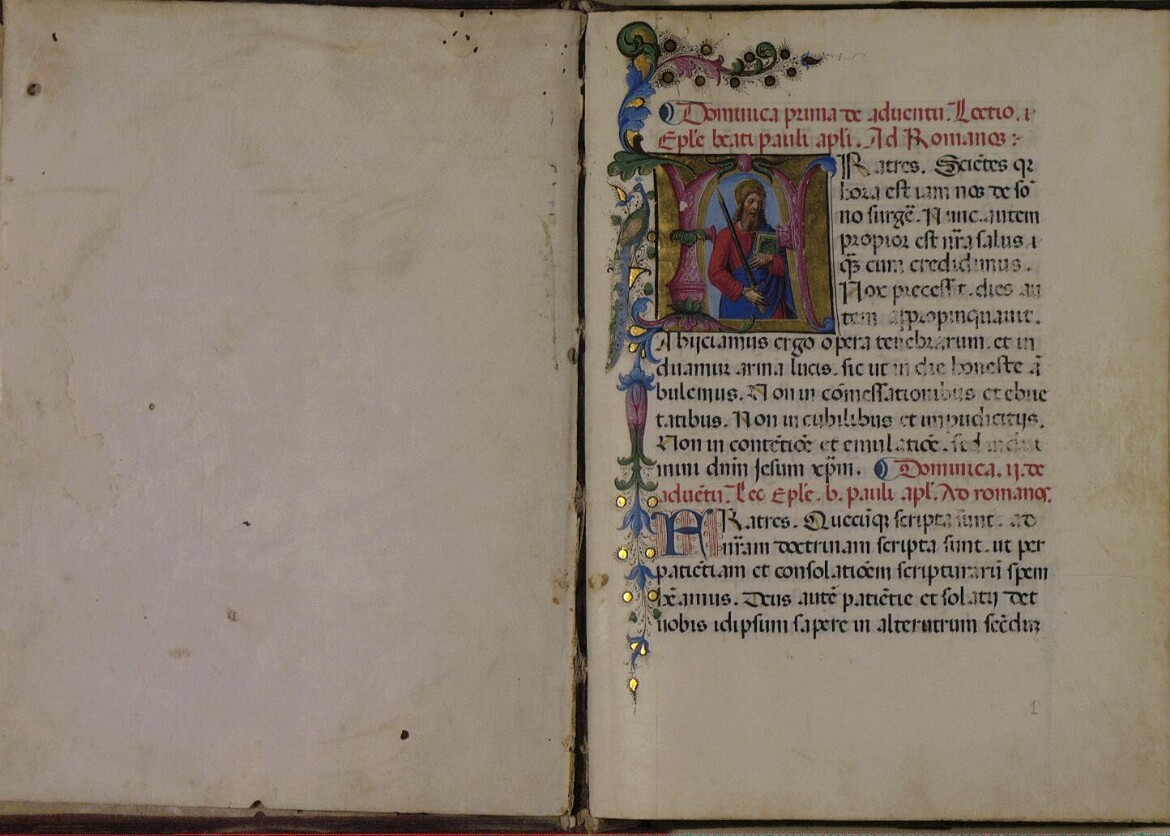 Dominica prima de aduentu. Lectio. i
Eple beati pauli apli. Ad Romanos:
FRatres. Sciētes qr
hora est iam nos de sō
no surgē. Nunc autem
propior est nr̄a salus .
q̄ cum credidimus.
Nox precessit. dies au
tem appropinquauit.
Abijciamus ergo opera tenebrarum. et in
duamur arma lucis. sic ut in die honeste ā
bulemus. Non in cōmessationibus et ebrie
tatibus. Non in cubilibus et impudicitijs.
Non in contētiōe et emulatiōe. sed indui
mini dnm Jesum xp̄m. Dominica. ij. de
aduētu. Lec Eple. b. pauli apl. Ad romanos.
FRatres. Quecūq̨ scripta sunt. ad
nr̄am doctrinam scripta sunt. ut per
patiētiam et consolatiōem scripturarū spem
hēamus. Deus autē patiētie et solatij det
nobis idipsum sapere in alterutrum secūdū
1